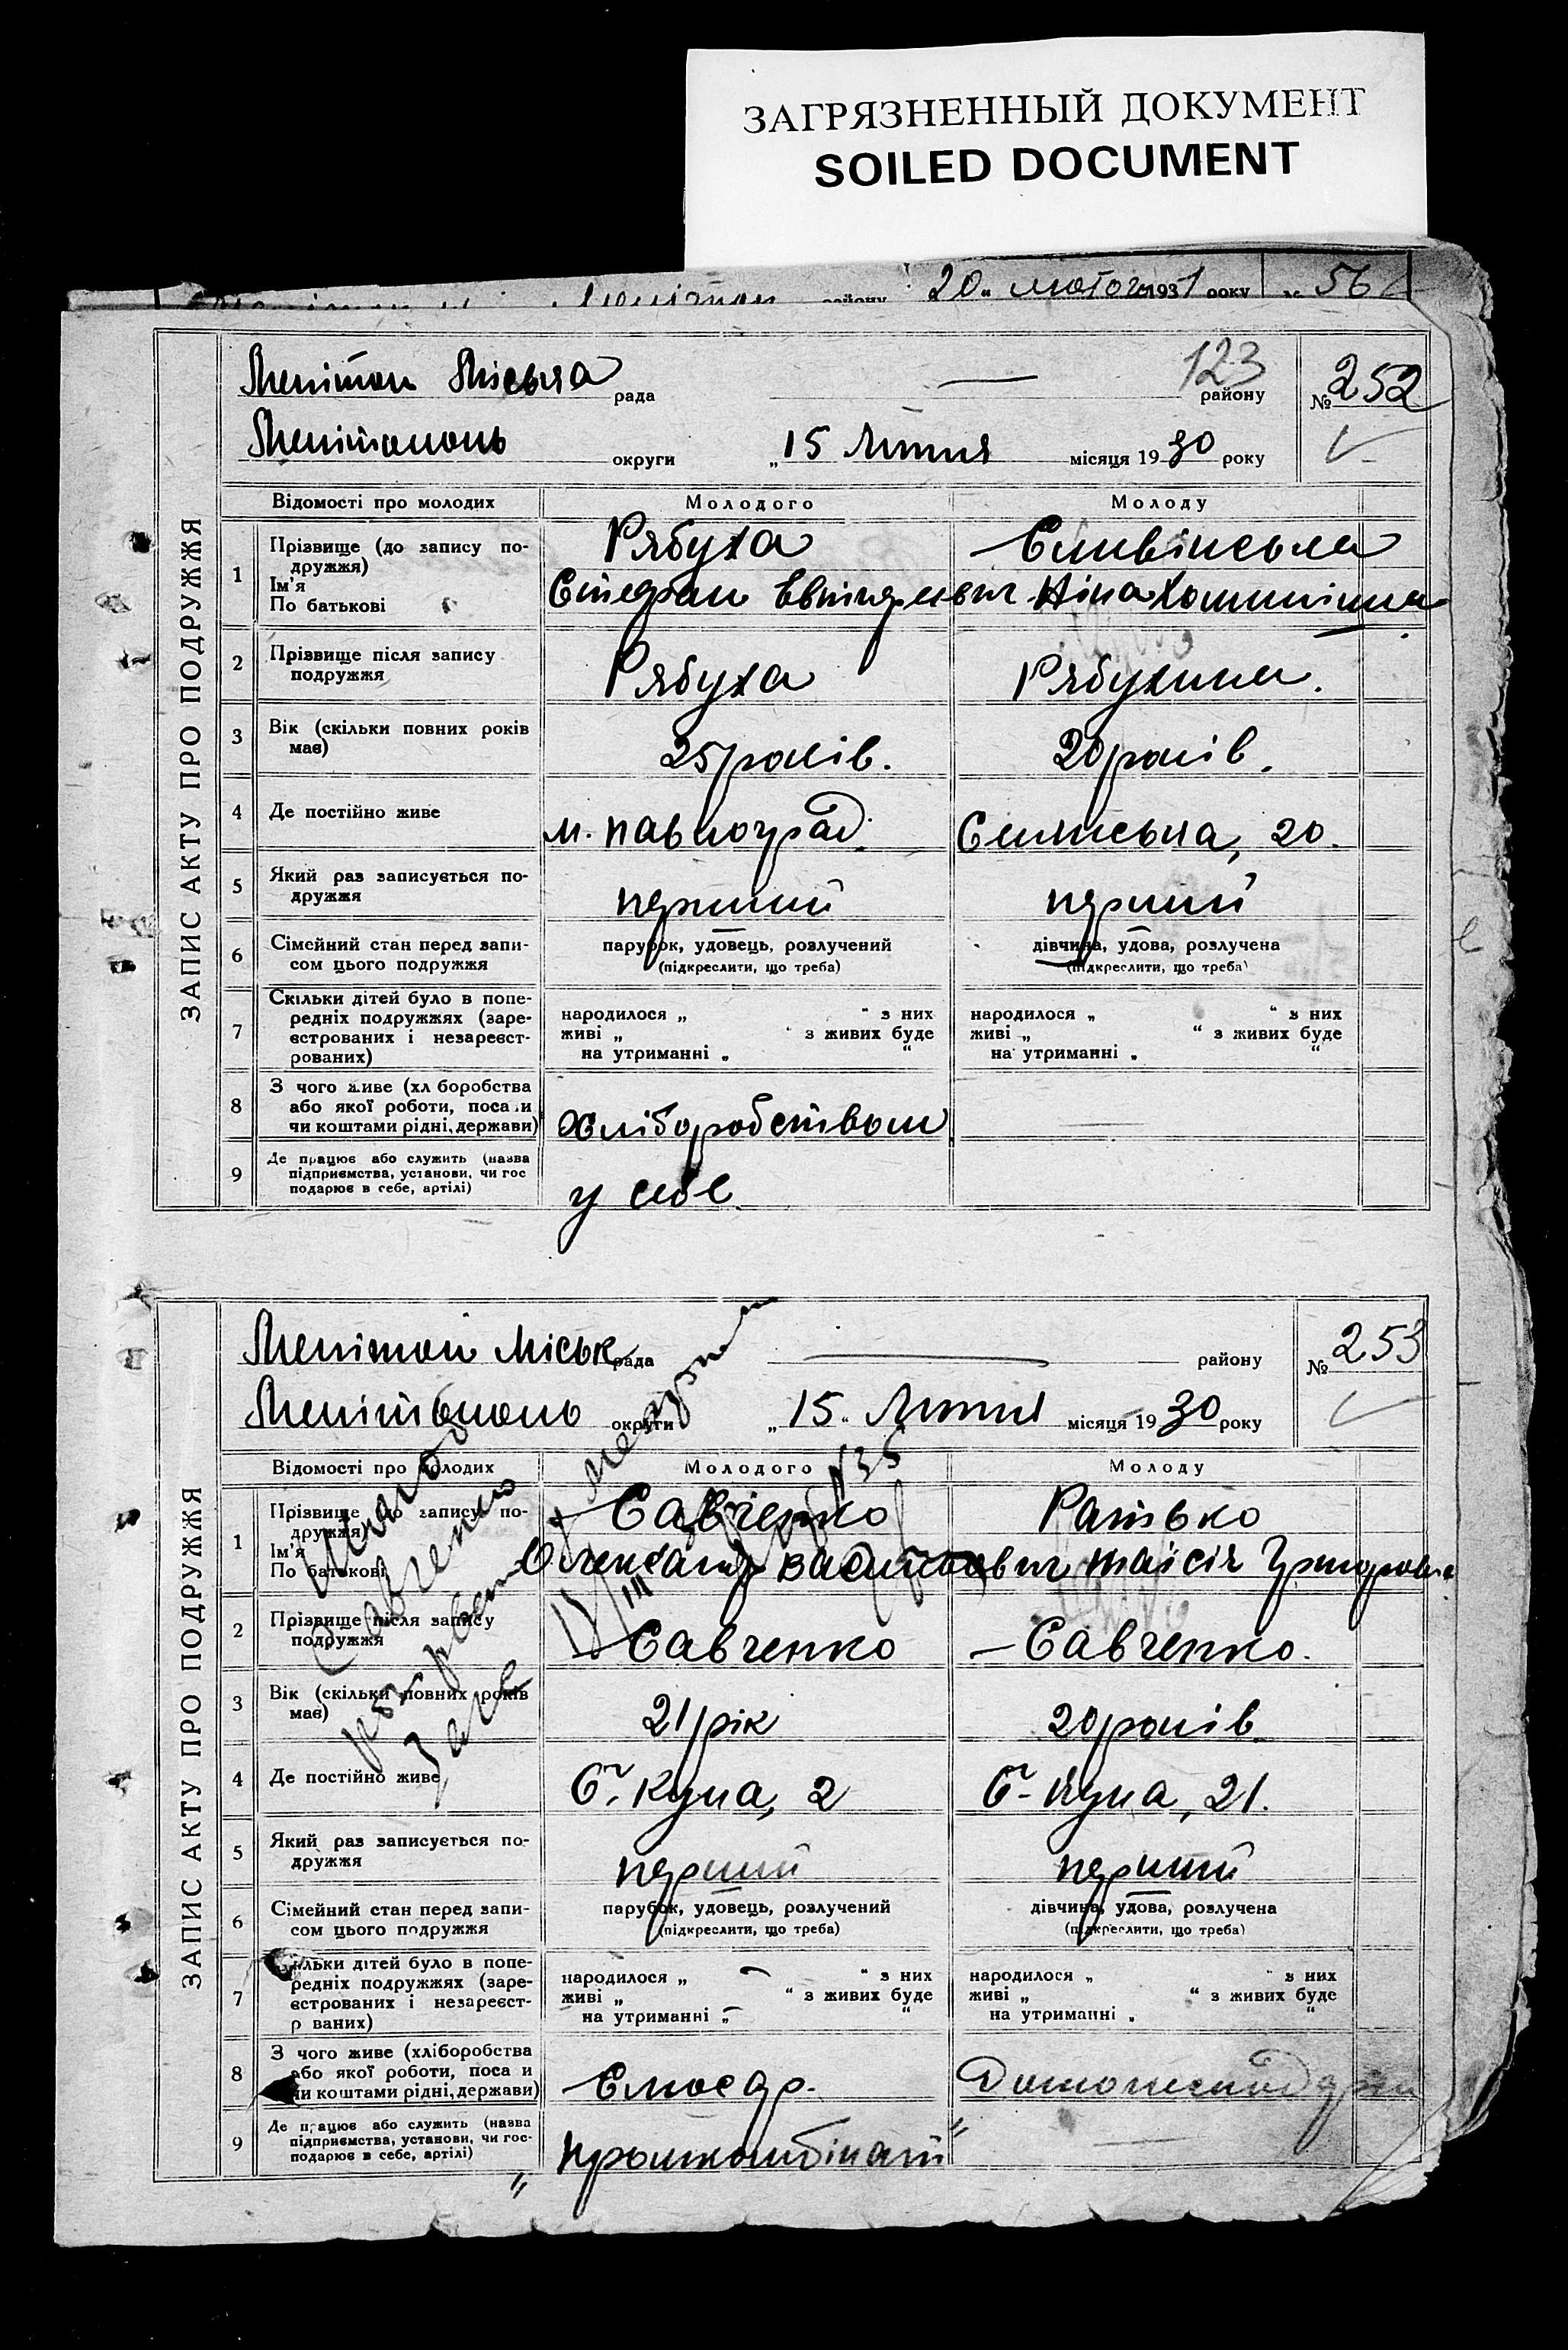 ЗАГРЯЗНЕННЫЙ ДОКУМЕНТ
SOILED DOCUMENT
району „20„ лютого 1931 року № 56
ЗАПИС АКТУ ПРО ПОДРУЖЖЯ
Мелітоп Міська рада — району 123 № 252
Мелітополь округи „15 Липня місяця 1930 року
Відомості про молодих Молодого Молоду
1 Прізвище (до запису по-
дружжя)
Ім'я
По батькові
Рябуха
Стефан
Ніна
2 Прізвище після запису
подружжя
Рябуха Рябухина.
3 Вік (скільки повних років
має)
25 років. 20 років.
4 Де постійно живе м. Павлоград. 20.
5 Який раз записується по-
дружжя
перший перший
6 Сімейний стан перед запи-
сом цього подружжя
парубок, удовець, розлучений дівчина, удова, розлучена
(підкреслити, що треба) (підкреслити, що треба)
7 Скільки дітей було в попе-
редніх подружжях (заре-
єстрованих і незареєст-
рованих)
народилося „ “ з них народилося „ “ з них
живі „ “ з живих буде живі „ “ з живих буде
на утриманні „ “ на утриманні „ “
8 З чого живе (хл боробства
або якої роботи, поса и
чи коштами рідні, держави)
Хліборобством —
9 Де працює або служить (назва
підприємства, установи, чи гос
подарює в себе, артілі)
у себе
ЗАПИС АКТУ ПРО ПОДРУЖЖЯ
Мелітоп Міськ рада — району № 253
Мелітополь округи „15„ Липня місяця 1930 року
Відомості про молодих Молодого Молоду
1 Прізвище до запису по-
дружжя)
Ім'я
По батькові
Савченко Ратько
Олександр Василь Таісія Григоровн
2 Прізвище після запису
подружжя
Савченко — Савченко.
3 Вік (скільки повних років
має)
21 рік 20 років.
4 Де постійно живе Б. Куна, 2 Б- Куна, 21.
5 Який раз записується по-
дружжя
перший перший
6 Сімейний стан перед запи-
сом цього подружжя
парубок, удовець, розлучений дівчина, удова, розлучена
(підкреслити, що треба) (підкреслити, що треба)
7 льки дітей було в попе-
редніх подружжях (заре-
єстрованих і незареєст-
р ваних)
народилося „ “ з них народилося „ “ з них
живі „ “ з живих буде живі „ “ з живих буде
на утриманні „ “ на утриманні „ “
8 З чого живе (хліборобства
або якої роботи, поса и
чи коштами рідні, держави)
Слюсар.
9 Де працює або служить (назва
підприємства, установи, чи гос-
подарює в себе, артілі)
„Промкомбінат“ —